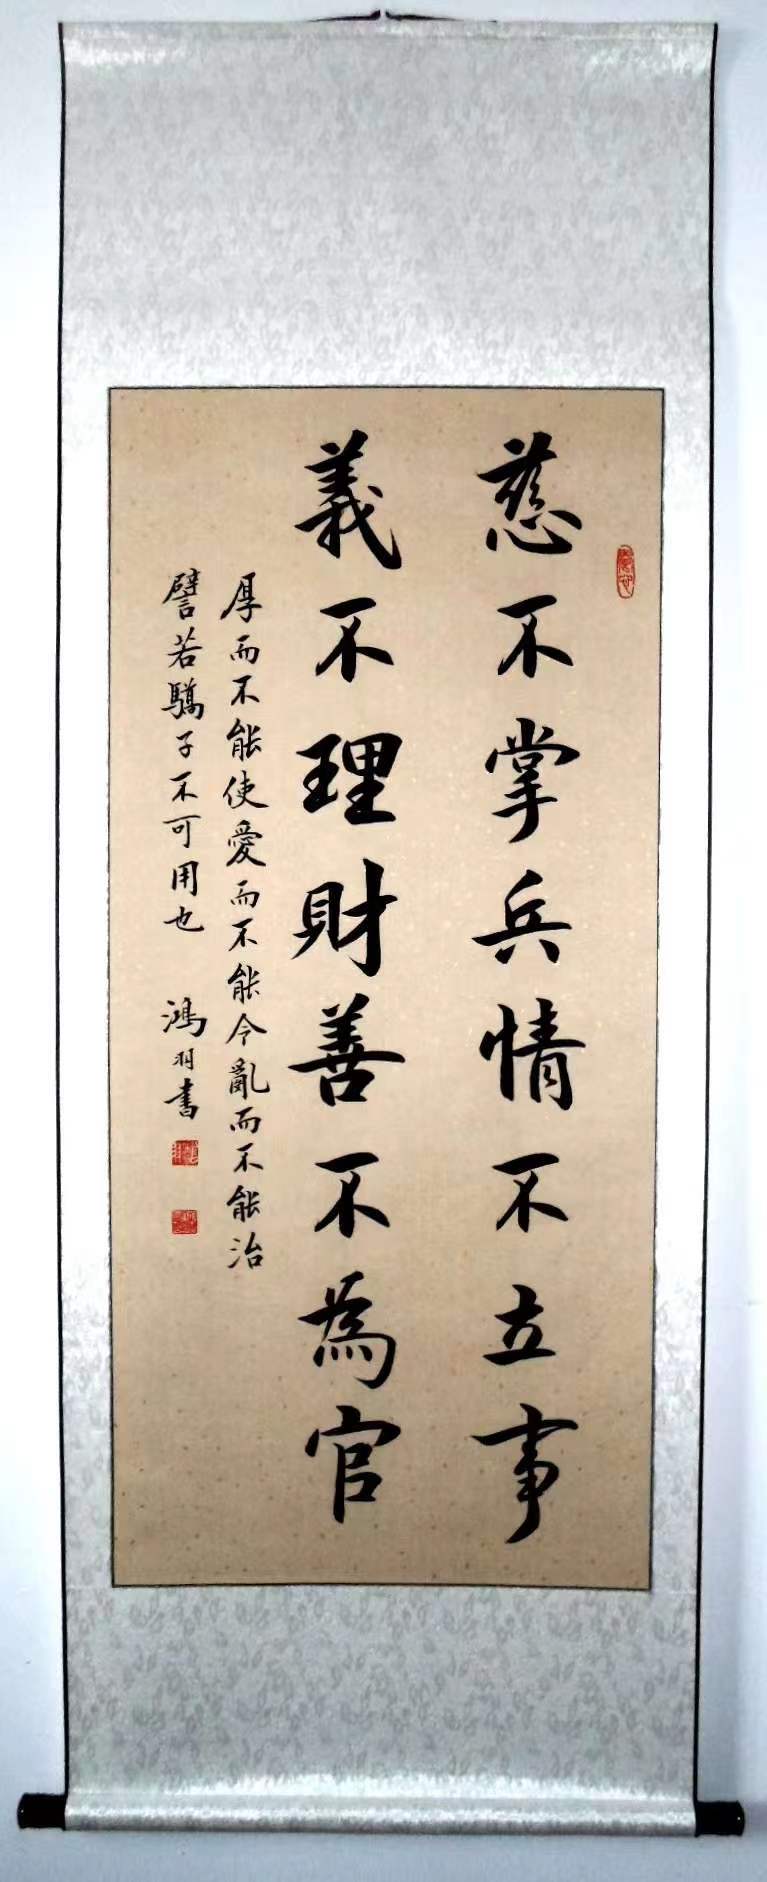 慈不掌兵情不立事
義不理財善不為官
厚而不能使愛而不能令亂而不能治
譬若驕子不可用也 鴻羽書